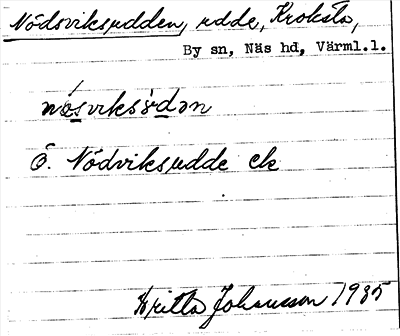 Nödsviksudden, udde, Kroksta,
By sn, Näs hd, Värml.l.
nǿsviksỳdən
Ö. Nödviksudde ek
Britta Johansson 1935